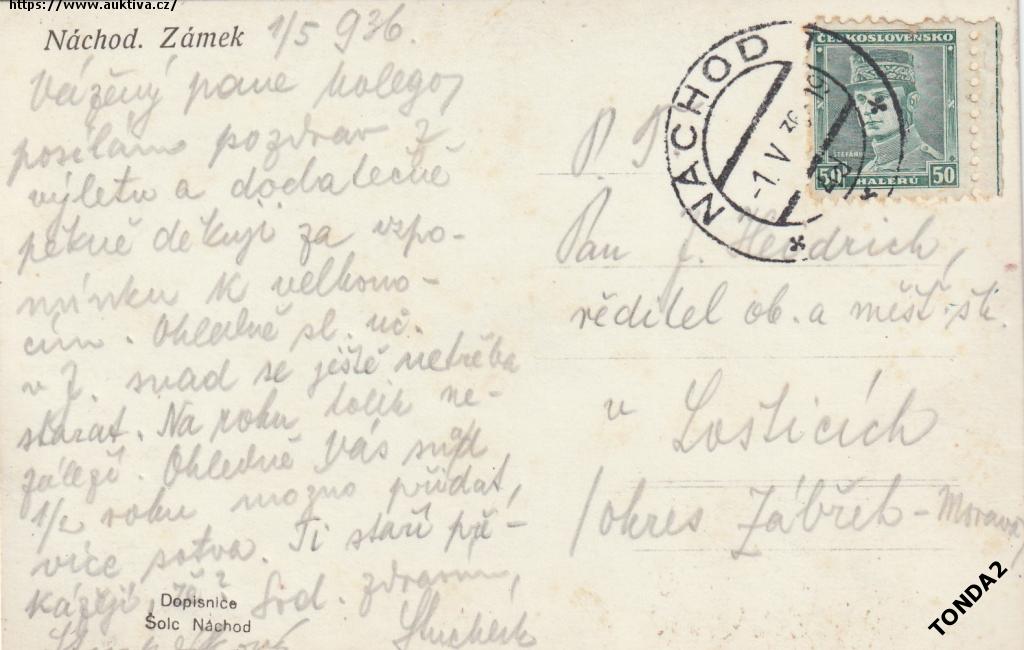 https://www.auktiva.cz/
Náchod. Zámek 1/5 936.
Vážený pane kolego,
posílám pozdrav z
výletu a dodatečně
pěkně děkuji za vzpo-
mínku k velkono-
cím. Ohledně sl. uč.
v Z. snad se ještě netřeba
starat. Na roku tolik ne-
záleží. Ohledně Vás snad
1/2 roku možno přidat,
více sotva. Ti staří pře-
kážejí, že? Srd. zdravím,
Dopisnice
Šolc Náchod
NÁCHOD 1
-1. V 36-19
ČESKOSLOVENSKO
ŠTEFÁNIK
50 HALÉŘŮ 50
P. T.
Pan J. Heidrich,
ředitel ob. a měšť. šk.
v Lošticích
/okres Zábřeh-Morava/
TONDA2